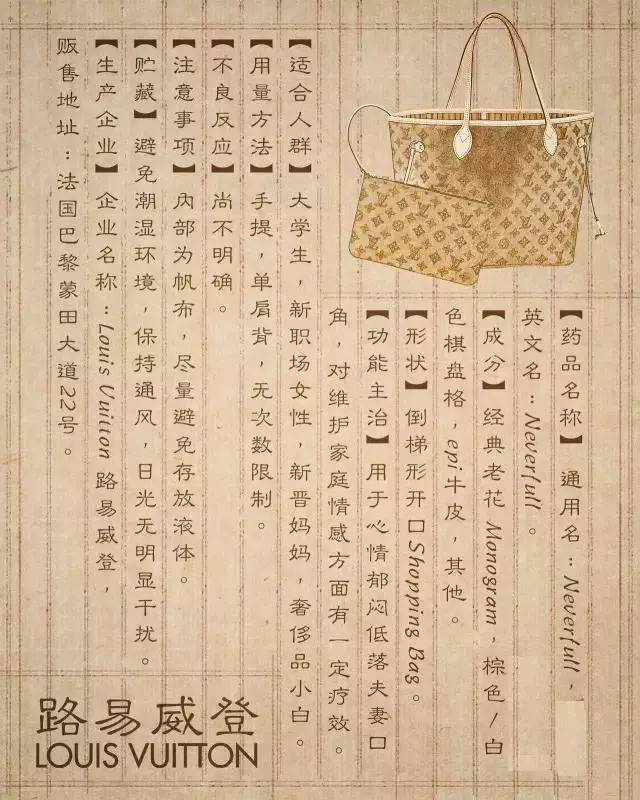 【药品名称】通用名：Neverfull，
英文名：Neverfull。
【成分】经典老花 Monogram，棕色/白
色棋盘格，epi牛皮，其他。
【形状】倒梯形开口Shopping Bag。
【功能主治】用于心情郁闷低落夫妻口
角，对维护家庭情感方面有一定疗效。
【适合人群】大学生，新职场女性，新晋妈妈，奢侈品小白。
【用量方法】手提，单肩背，无次数限制。
【不良反应】尚不明确。
【注意事项】内部为帆布，尽量避免存放液体。
【贮藏】避免潮湿环境，保持通风，日光无明显干扰。
【生产企业】企业名称：Louis Vuitton 路易威登，
贩售地址：法国巴黎蒙田大道22号。
路易威登
LOUIS VUITTON